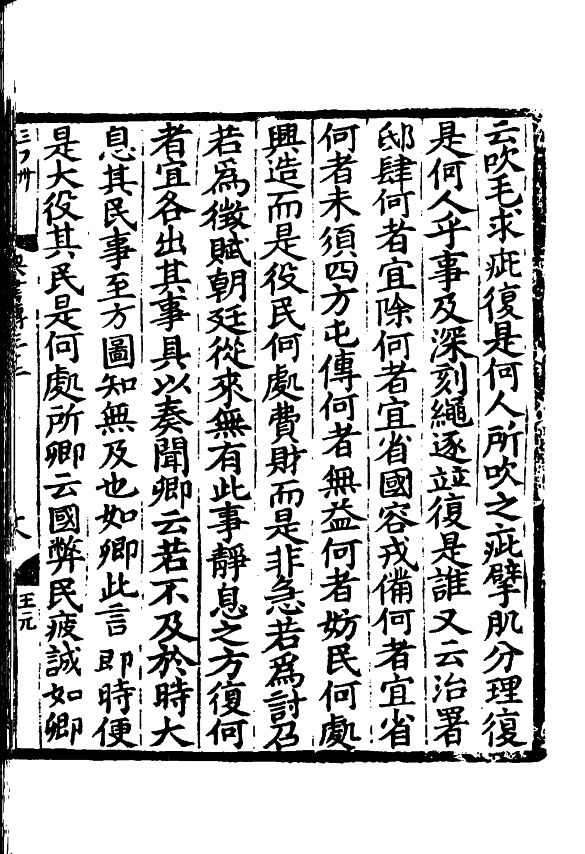 云吹毛求疵復是何人所吹之疵擘肌分理復
是何人乎事及深刻繩逐並復是誰又云治署
邸肆何者宜除何者宜省國容戎備何者宜省
何者未須四方屯傳何者無益何者妨民何處
興造而是役民何處費財而是非急若爲討召
若爲徵賦朝廷從來無有此事靜息之方復何
者宜各出其事具以奏聞卿云若不及於時大
息其民事至方圖知無及也如卿此言即時便
是大役其民是何處所卿云國弊民疲誠如卿
王元